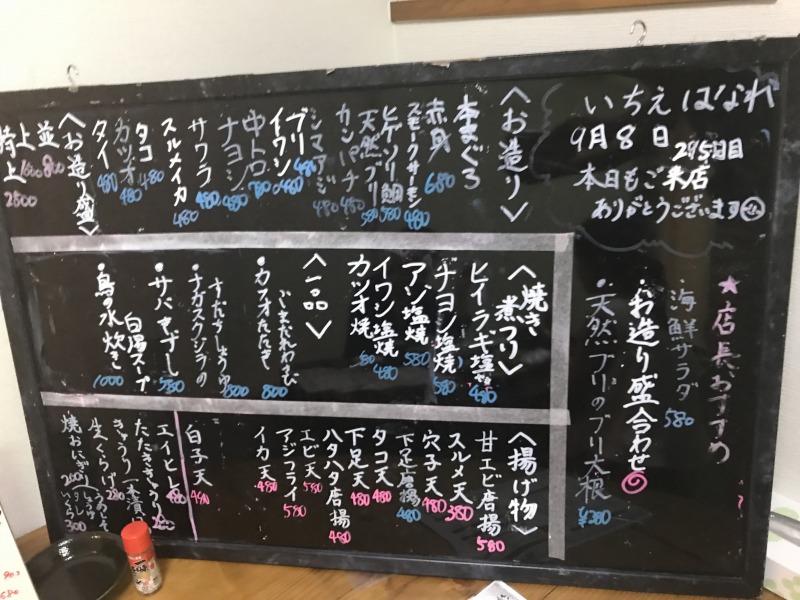 いちえはなれ
9月8日
295日目
本日もご来店
ありがとうございます
★店長おすすめ
・海鮮サラダ 580
・お造り盛合わせ
・天然ブリのブリ大根 ¥380
〈お造り〉
本まぐろ
赤身 680
スモークサーモン 480
ヒゲソリ鯛 580
天然ブリ 580
カンパチ 480
シマアジ 480
ブリ 480
イワシ 480
中トロ 780
ナヨシ 480
サワラ 480
スルメイカ 480
タコ 480
カツオ 480
タイ 480
〈お造り盛〉
並 800
上 1600
特上 2500
〈焼き煮つけ〉
ヒイラギ塩焼 480
ナヨシ塩焼 580
アジ塩焼 580
イワシ塩焼 480
カツオ焼
〈一品〉
・カツオたたき 800
・ナガスクジラの
すだちしょうゆ 800
・サバきずし 580
・鳥の水炊き
白湯スープ 1000
〈揚げ物〉
甘エビ唐揚 580
スルメ天 380
穴子天 480
下足唐揚 480
タコ天 480
下足天 480
ハタハタ唐揚 480
エビ天 580
アジフライ 580
イカ天 480
白子天 490
エイヒレ 480
たたききゅうり
きゅうり一本漬
生くらげ 280
焼おにぎり
300